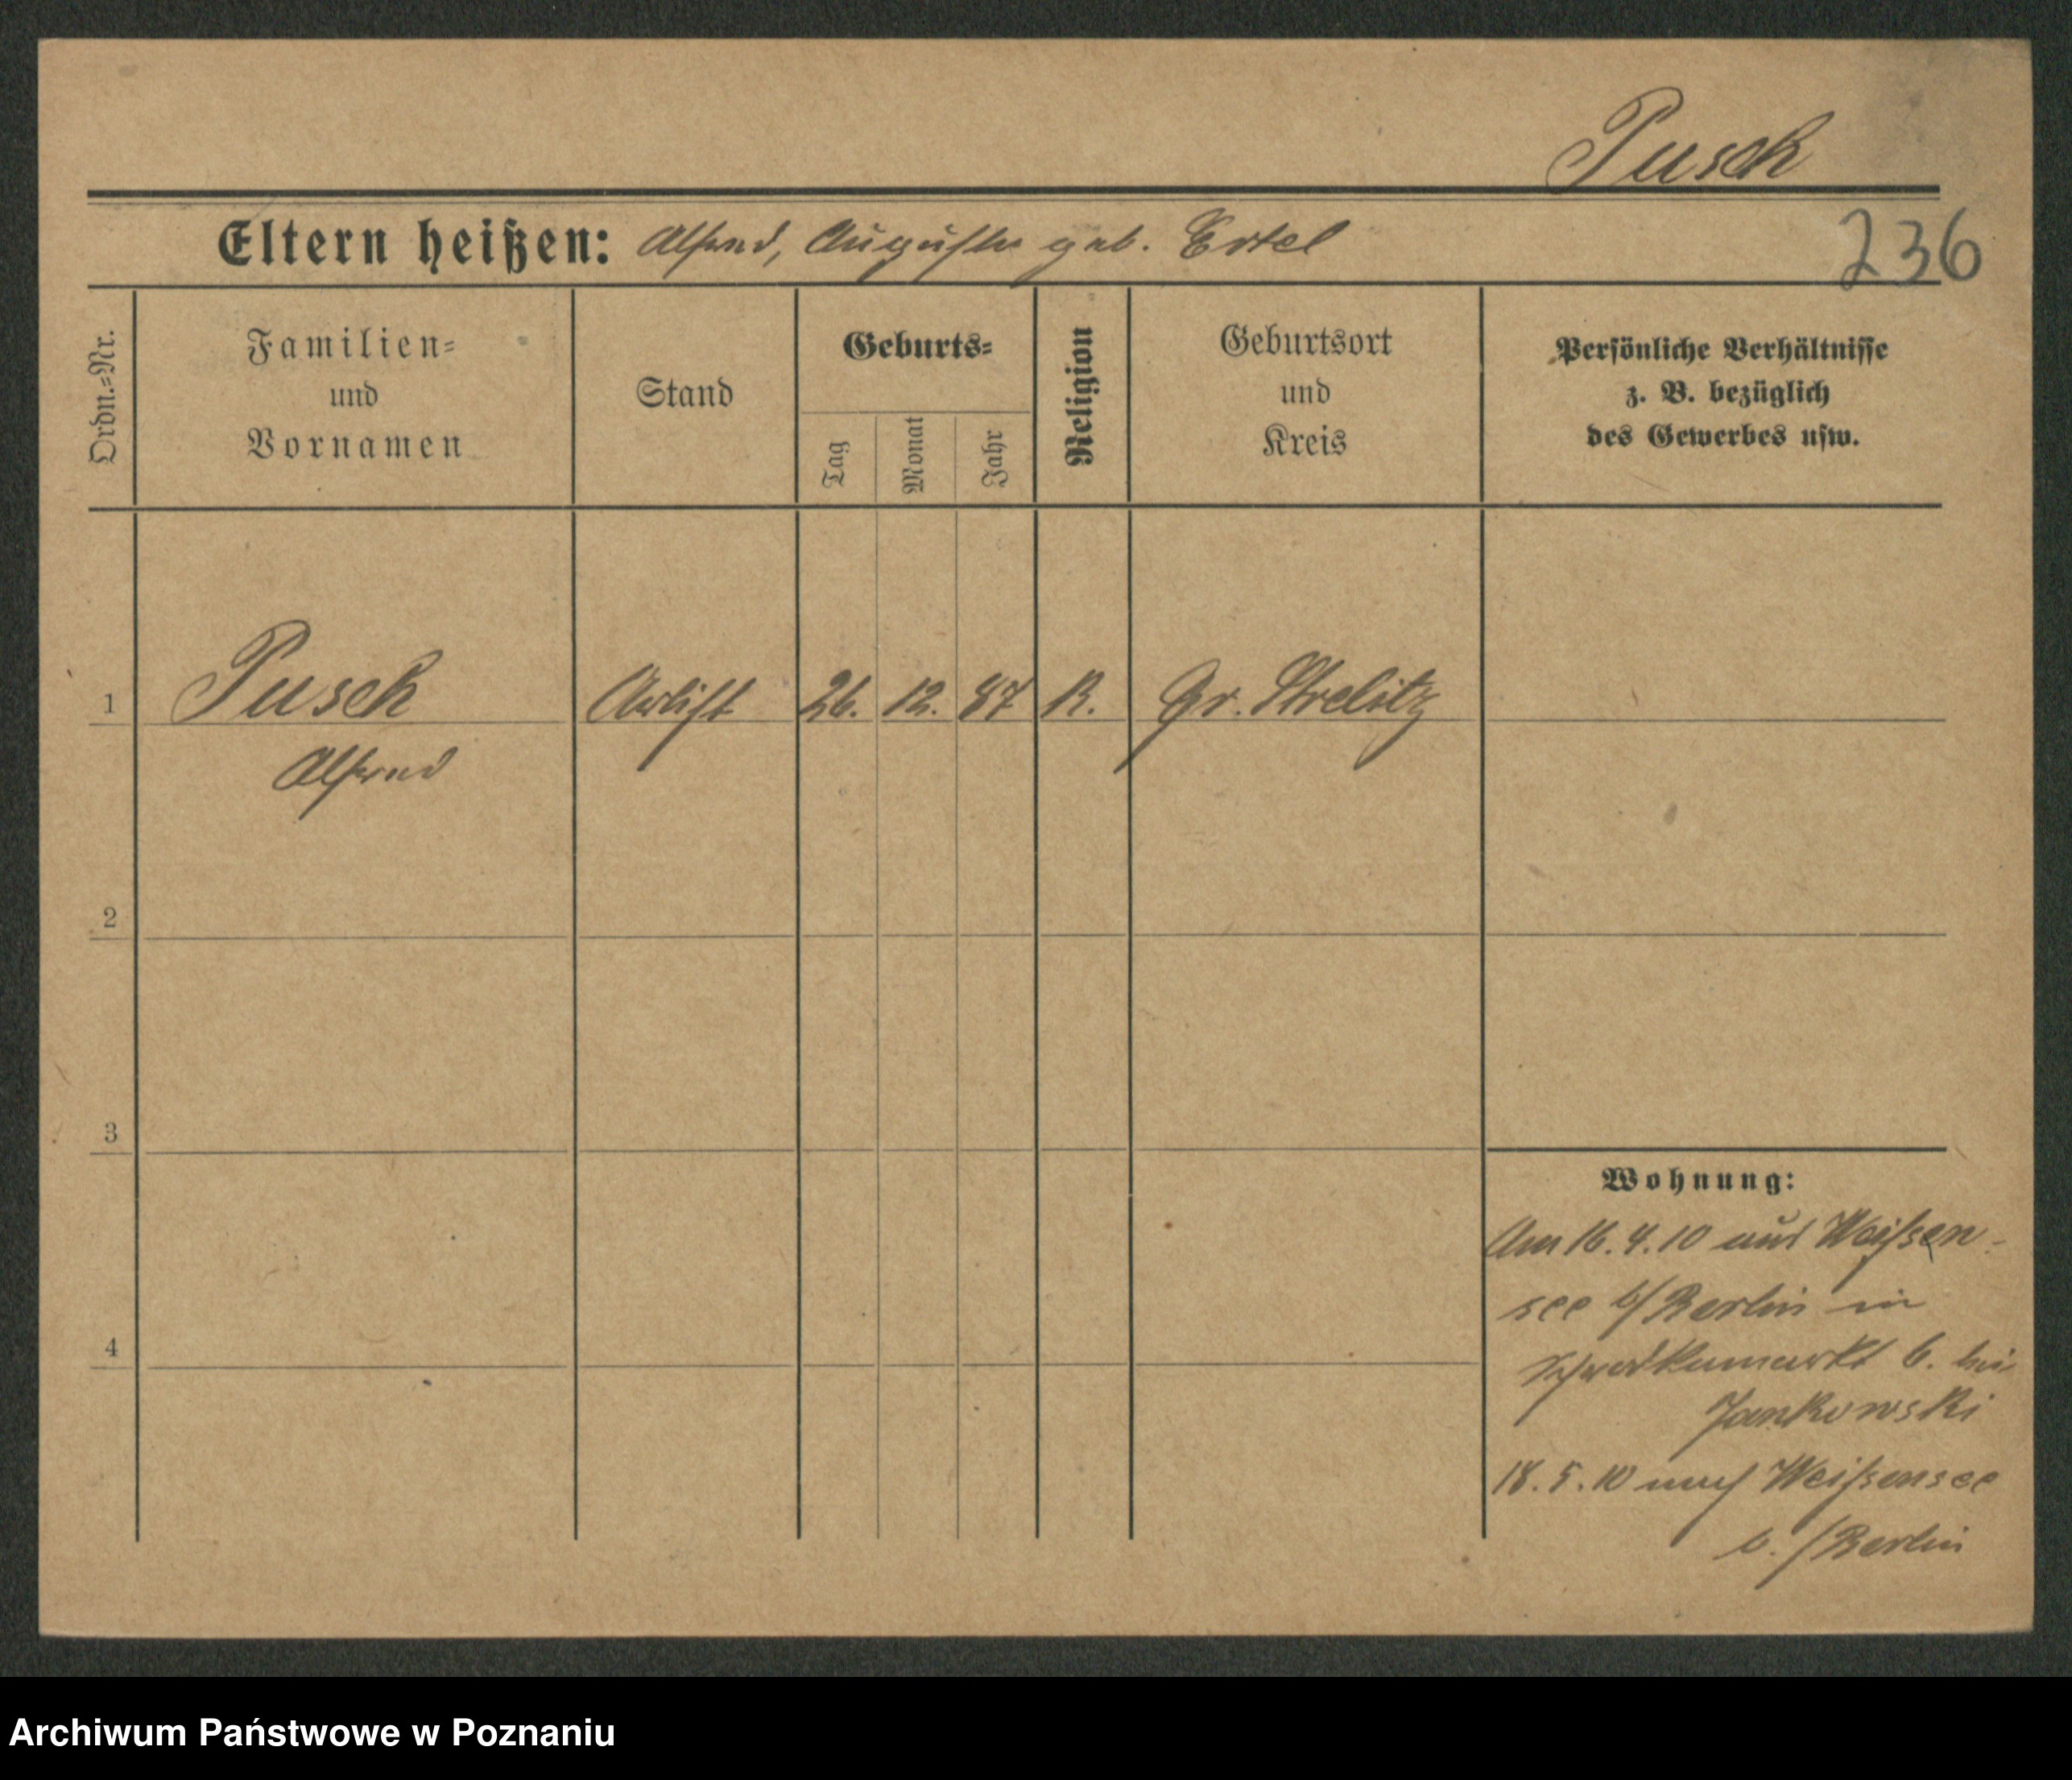 Pusch
Eltern heißen: Alfred, Auguste geb. Ertel
236
Ordn.=Nr.
Familien=
und
Vornamen
Stand
Geburts=
Tag
Monat
Jahr
Religion
Geburtsort
und
Kreis
Persönliche Verhältnisse
z. B. bezüglich
des Gewerbes usw.
1 Pusch Artist 26. 12. 87 K. Gr. Strelitz
Alfred
2
3
4
Wohnung:
Am 16. 4. 10 aus Weißen-
see b/Berlin in
6. bei
Jankowski
18. 5. 10 nach Weißensee
b. /Berlin
Archiwum Państwowe w Poznaniu